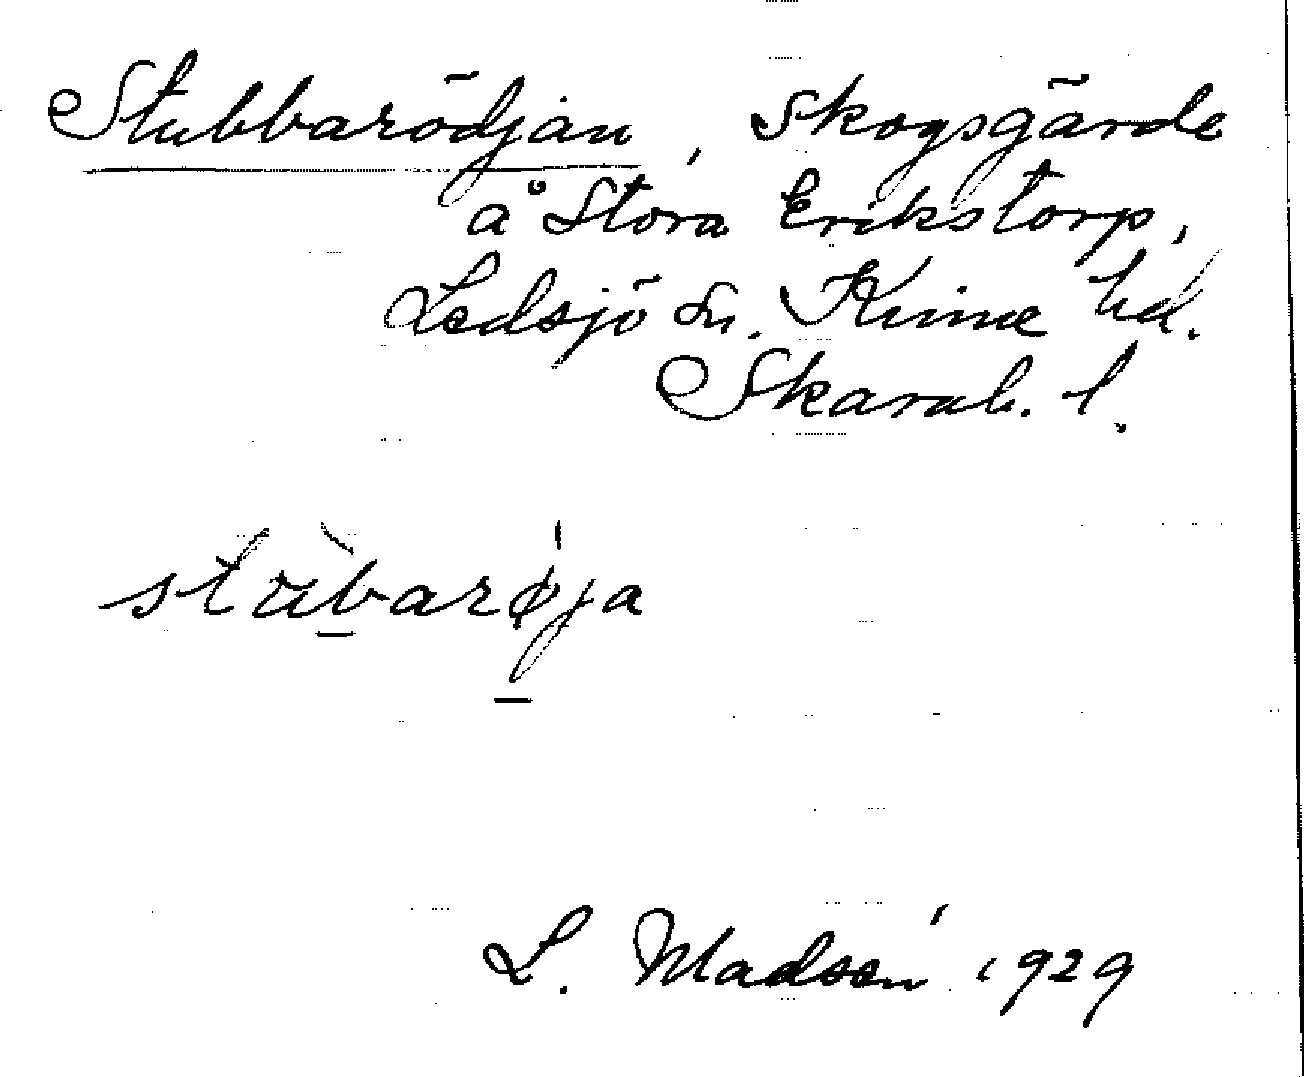 Stubbarödjan, Skogsgärde
å Stora Erikstorp,
Ledsjö sn. Kinne hd.
Skarab. l.
stu̇̀barøja
L. Madsén 1929